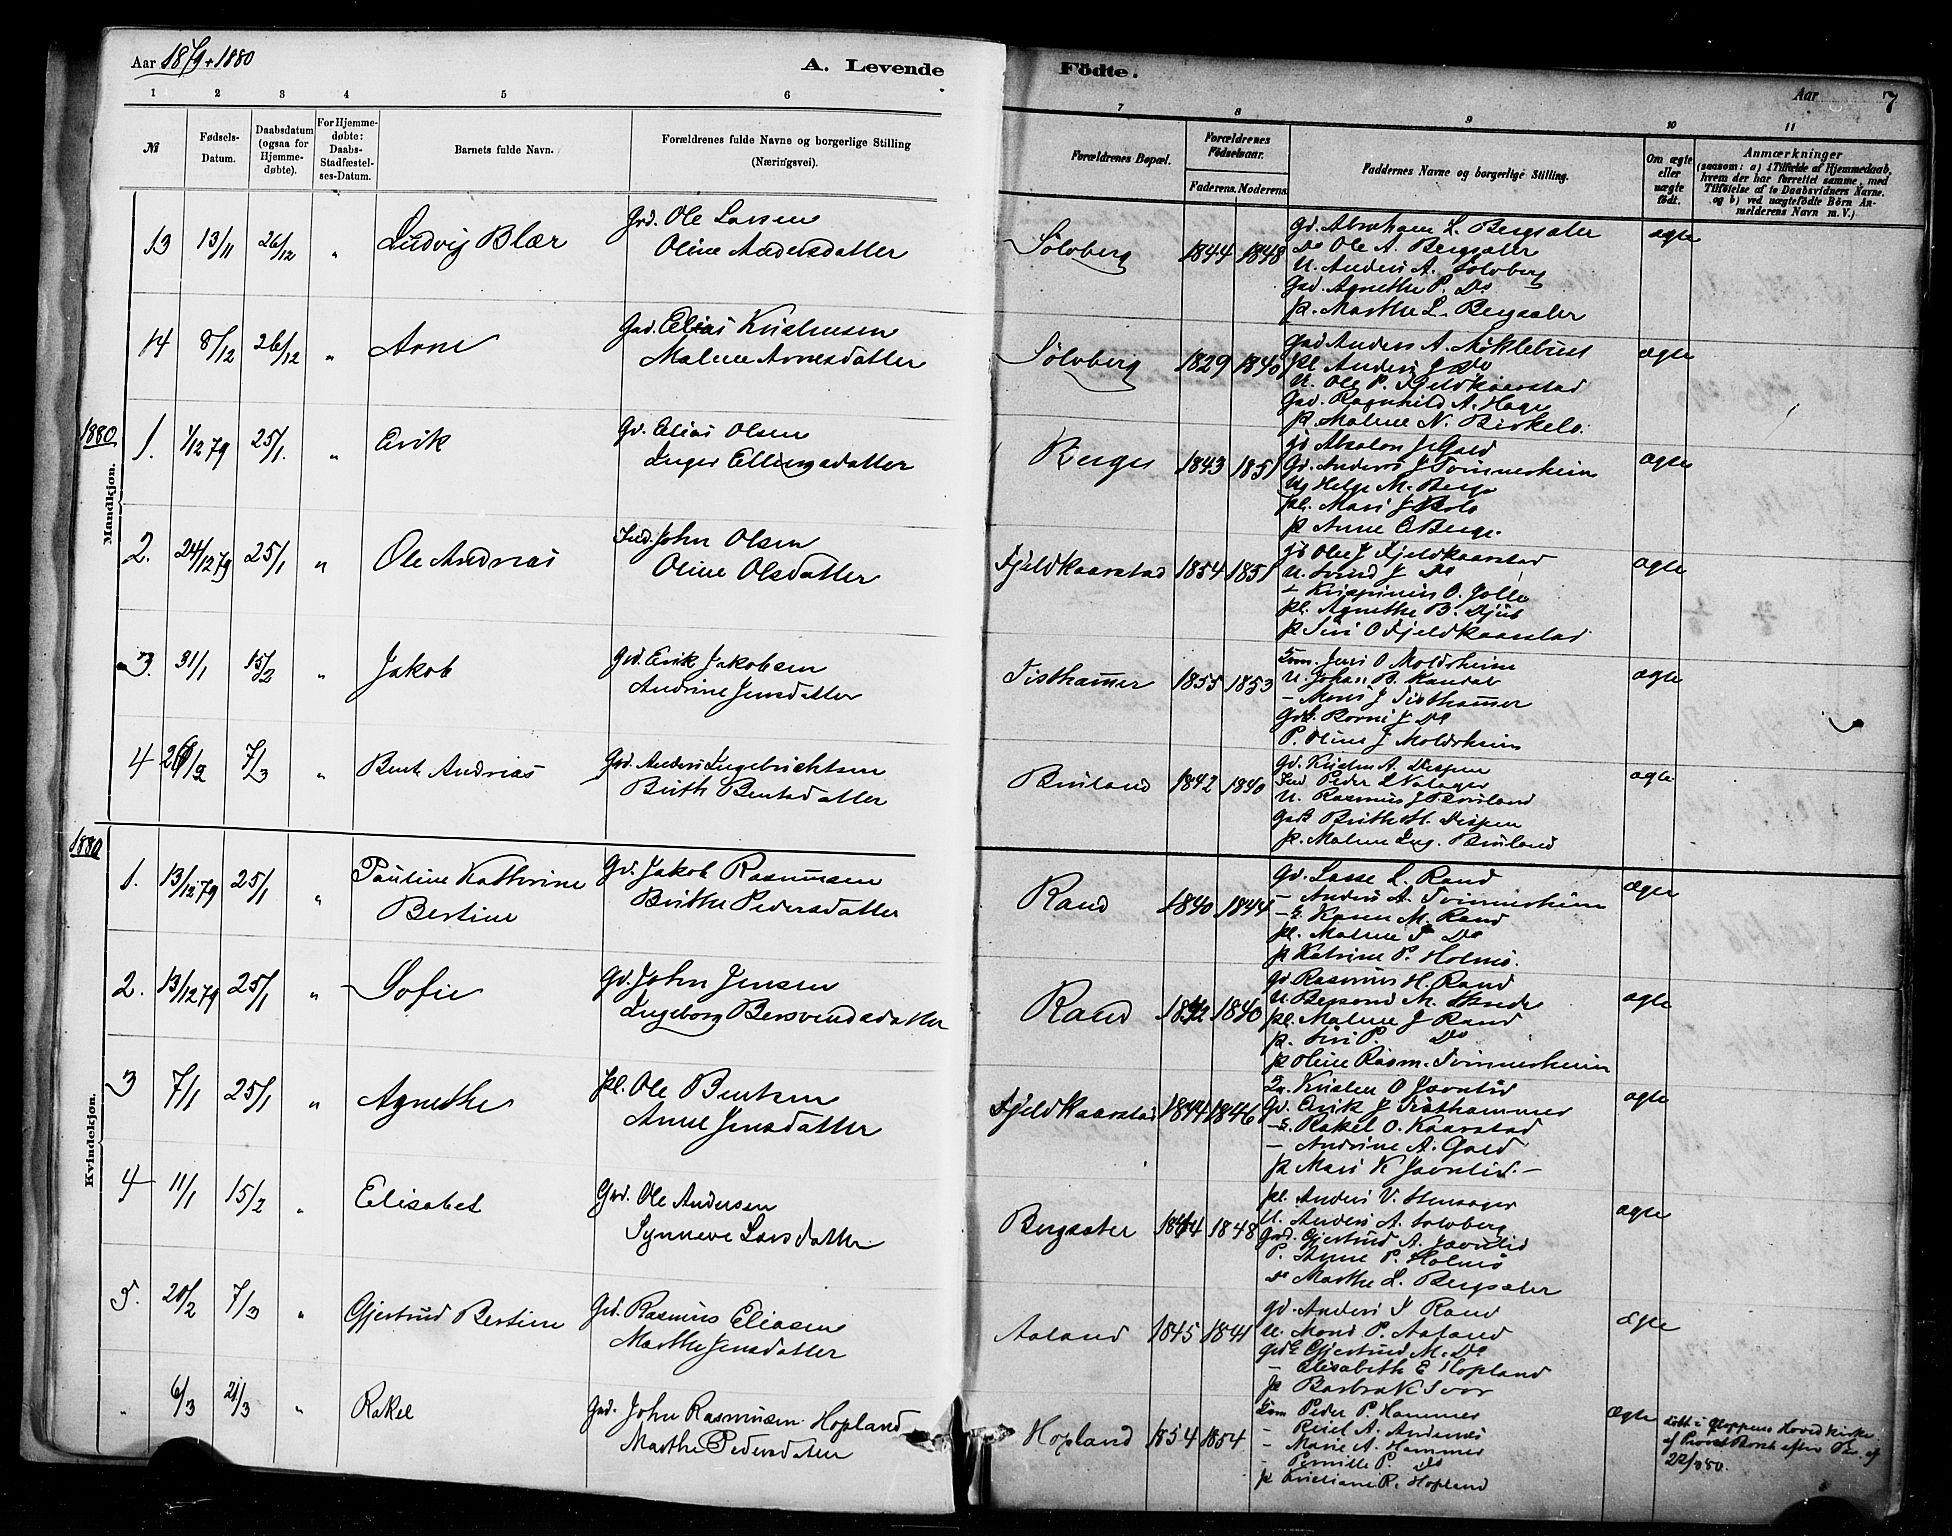 Aar 1879 + 1880
A. Levende
Födte.
Aar
7
1 2 3 4 5 6 7 8 9 10 11
№
Fødsels-Datum.
Daabsdatum (ogsaa for Hjemme-døbte).
For Hjemme-døbte: Daabs-Stadfæstel-ses-Datum.
Barnets fulde Navn.
Forældrenes fulde Navne og borgerlige Stilling (Næringsvei).
Forældrenes Bopæl.
Forældrenes Födselsaar.
Faderens. Moderens.
Faddernes Navne og borgerlige Stilling.
Om ægte eller uægte født.
Anmærkninger
(saasom: a) i Tilfælde af Hjemmedaab,
hvem der har forrettet samme, med
Tilføielse af to Daabsvidners Navne.
og b) ved uægtefødte Börn An-
melderens Navn m. V.)
13 13/11 26/12 " Ludvig Blær
Grd. Ole Larsen
Oline Andersdatter
Solvberg 1844 1848
Gd. Abraham L. Bergsater
Do Ole A. Bergsater
U. Anders A. Solvberg
Grd. Agnethe P. Do
p. Marthe L. Bergsater
ægte
14 8/12 26/12 " Arne
Grd. Elias Kristensen
Malene Arnesdatter
Solvberg 1829 1840
Grd Anders A. Myklebust
pl. Anders J Do
U. Ole P. Fjeldkaarstad
Grd. Ragnhild A. Hage
p. Malene N. Birkelo.
ægte
1880
Mandkjøn.
1. 1/12 79 25/1. " Erik
Gd. Elias Olsen
Inger Ellingsdatter
Berge 1843 1851
Absalon J. Gald
Gd. Anders J Tvinnerheim
Ug Helge M. Berge
pl. Mari J
p Anne E Berge.
ægte
2. 24/12 79 25/1 " Ole Andreas
Ind. John Olsen
Oline Olsdatter
Fjeldkaarstad 1854 1851
Ole J Fjeldkaarstad
U. Svend J Do
- Krispinius O.
pl. Agnethe B.
p Siri O Fjeldkaarstad
ægte
3. 31/1 15/2 " Jakob
Grd. Erik Jakobsen
Andrine Jensdatter
Tisthammer 1855 1853
Jens O Moldsheim
U. Johan B. Kandal
- Mons J Tisthammer
J Do
P. Oline J Moldsheim
ægte
4 /2 7/3 " Bent Andreas
Grd. Anders Ingebrichtsen
Brith Bentsdatter
Bruland 1842 1840
Gd. Kristen A.
Ind Peder
U. Rasmus J Bruland
Brithe M.
pl. Malene Ing. Bruland
ægte
1880
Kvindekjøn.
1. 13/12 79 25/1 " Pauline Kathrine
Bertine
Gd. Jakob Rasmussen
Brithe Pedersdatter
Rand 1840 1844
Gd. Lasse L. Rand
- Anders A. Tvinnerheim
Karen M. Rand
pl. Malene P Do
p Katrine P. Holme.
ægte
2. 13/12 79 25/1 " Sofie
Gd. John Jensen
Ingeborg Bersvendsdatter
Rand 1842 1840
Gd Rasmus H. Rand
U. Bersvend M.
pl. Malene J Rand
p. Siri P. Do
p Oline Rasm. Tvinnerheim
ægte
3 7/1 25/1 " Agnethe
pl. Ole Bentsen
Anne Jensdatter
Fjeldkaarstad 1844 1846
Kristen O
Gd. Erik J Tisthammer
Rakel O. Kaarstad
- Andrine A. Gald
p Mari K
ægte
4 11/1 15/2 " Elisabet
Grd. Ole Andersen
Synneve Larsdatter
Bergsater 1844 1848
pl. Anders V.
U. Anders A. Solvberg
Grd. Gjertrud A.
P. Anne P. Holme
Do Marthe L. Bergsater
ægte
5. 20/2 7/3 " Gjertrud Bertine
Grd. Rasmus Eliasen
Marthe Jensdatter
Aaland 1845 1841
Gd. Anders J Rand
U. Mons P. Aaland
Gjertrud M. Do
- Elisabeth E Hopland
p Barbra K
ægte
" 6/3 21/3 " Rakel
Grd. John Rasmusen Hopland
Marthe Pedersdatter
Hopland 1854 1854
Peder P. Hammer
- A. Andenæs
- Marie A. Hammer
- Pernille P. Do
p Kristiane R. Hopland
ægte
Døbt i Gloppens Hovedkirke
22/3 80.